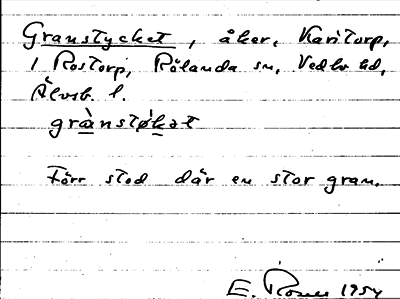 Granstycket, åker, Karitorp,
1 Rostorp, Rölanda sn, Vedbo hd,
Älvsb. l.
grànstø̀kət
Förr stod där en stor gran.
E. 1954